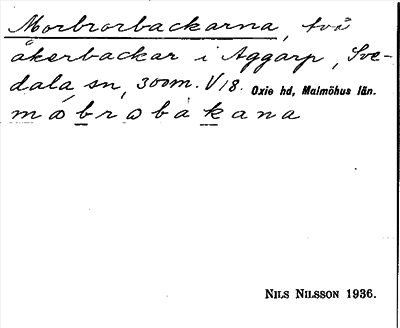 Morbrorbackarna, två
åkerbackar i Aggarp, Sve-
dala sn, 300m. V18. Oxie hd, Malmöhus län.
NILS NILSSON 1936.